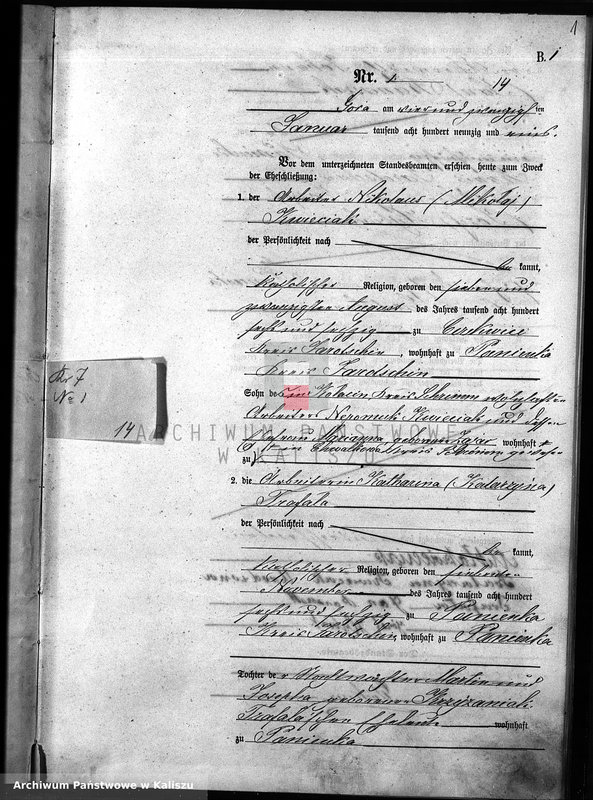 1
B. 1
Nr. 1.
14
Gora am vier und zwanzigsten
Januar tausend acht hundert neunzig und eins.
Vor dem unterzeichneten Standesbeamten erschien heute zum Zweck
der Eheschließung:
1. der Arbeiter Nikolaus (Mikołaj)
Kwieciak
der Persönlichkeit nach
be kannt,
katholischer Religion, geboren den sieben und
zwanzigsten August des Jahres tausend acht hundert
sechs und sechzig zu Cerekwica
Kreis Jarotschin, wohnhaft zu Panienka
Kreis Jarotschin
Sohn des in Kreis Schrimm
Arbeiters Nepomuk Kwieciak und dessen
Ehefrau Marianna geborenen wohnhaft
zu
2. die Arbeiterin Katharina (Katarzyna)
Frofala
der Persönlichkeit nach
be kannt,
katholischer Religion, geboren den siebenten
November des Jahres tausend acht hundert
sechs und sechzig zu Panienka
Kreis Jarotschin, wohnhaft zu Panienka
Tochter der Martin und
Josepha geborener Krzyżaniak
Frofala'schen Eheleute wohnhaft
zu Panienka
Nr 7
No 1
14
ARCHIWUM PAŃSTWOWE
W KALISZU
Archiwum Państwowe w Kaliszu